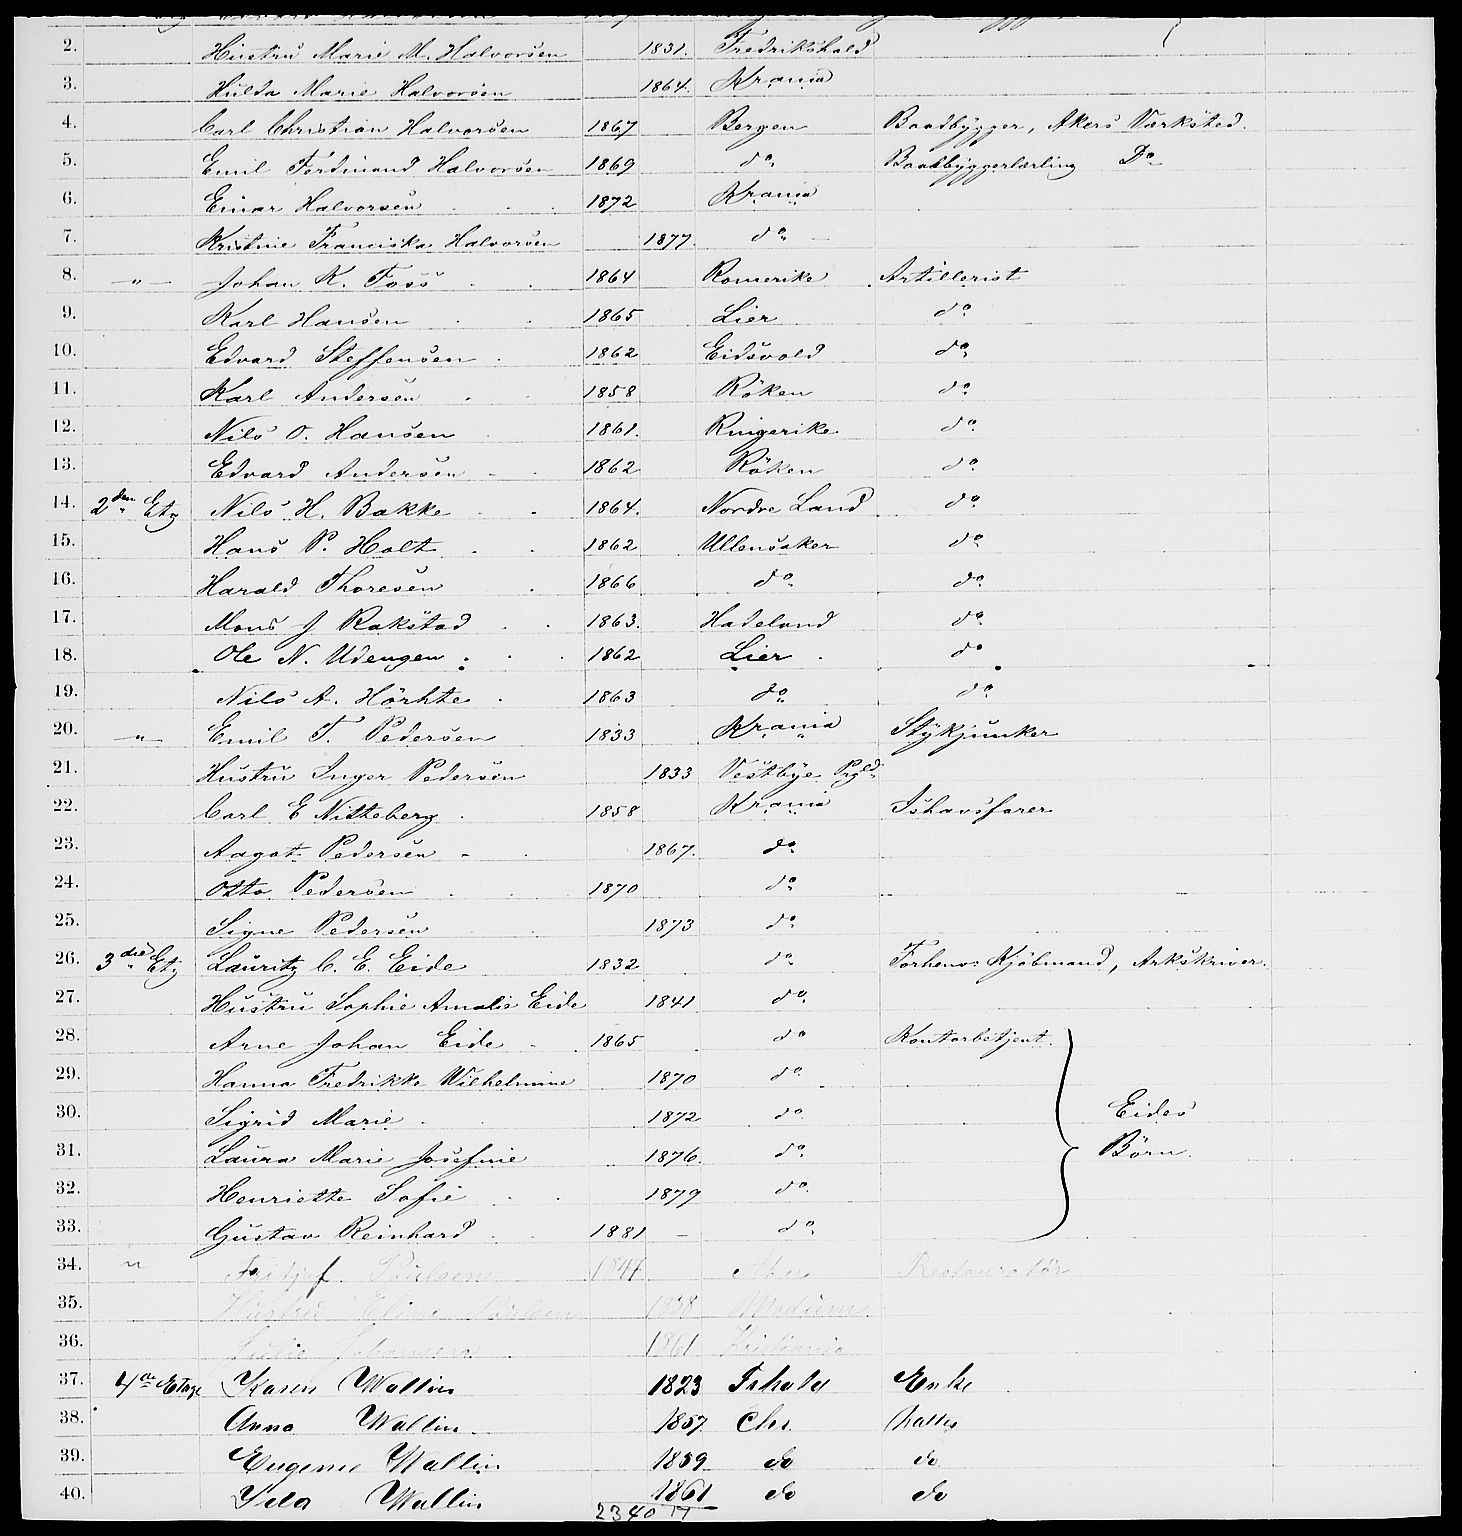 2. Hustru Marie M. Halvorsen 1831. Fredrikshald
3. Hulda Marie Halvorsen 1864. Krania
4. Carl Christian Halvorsen 1867 Bergen Baadbygger, Akers Værksted.
5. Emil Ferdinand Halvorsen 1869 do Baadbyggerlærling Do
6. Einar Halvorsen 1872 Krania
7. Kristine Franciska Halvorsen 1877. do
8. —"— Johan K. Foss 1864 Romerike Artillerist
9. Karl Hansen 1865 Lier do
10. Edvard Steffensen 1862 Eidsvold do
11. Karl Andersen 1858 Röken do
12. Nils O. Hansen 1861. Ringerike do
13. Edvard Andersen 1862 Röken do
14. 2den Etg Nils H. Bakke 1864. Nordre Land do
15. Hans P. Holt 1862 Ullensaker do
16. Harald Thoresen 1866 do do
17. Mons J Rakstad 1863. Hadeland do
18. Ole N. Udengen 1862 Lier do
19. Nils A. Hörhte 1863 do do
20. —"— Emil T. Pedersen 1833 Krania Stykjunker
21. Hustru Inger Pedersen 1833 Vestbye Prgld.
22. Carl E Nitteberg 1858 Krania Ishavsfarer
23. Aagot Pedersen 1867. do
24. Otto Pedersen 1870 do
25. Signe Pedersen 1873 do
26. 3die Etg Lauritz C. E. Eide 1832 do Forhenv: Kjöbmand, Arkskriver.
27. Hustru Sophie Amalie Eide 1841 do
28. Arne Johan Eide 1865 do Kontorbetjent.
29. Hanna Fredrikke Wilhelmine 1870 do
30. Sigrid Marie 1872 do Eides
31. Laura Marie Josefine 1876. do Börn.
32. Henriette Sofie 1879 do
33. Gustav Reinhard 1881 – do
34. " Fritjof Poulsen 1847 Aker Restauratör
35. Hustru Eline Poulsen 1838 Modum
36. Julie Johansen 1861 Kristiania
37. 4de Etage Karen Wallin 1823 Fshald Enke
38. Anna Wallin 1857 Chr. Datter
39. Eugenie Wallin 1859 do do
40. Ida Wallin 1861 do do
2340 17